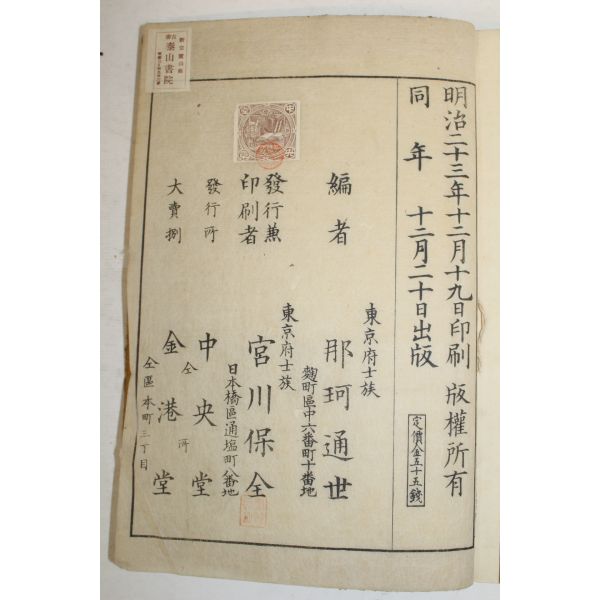 明治二十三年十二月十九日印刷
版權所有
同年十二月二十日出版
定價金五十五錢
東京府士族
編者 那珂通世
麴町區中六番町十番地
東京府士族
發行兼印刷者 宮川保全
日本橋區通塩町八番地
發行所 中央堂
仝所
大賣捌 金港堂
仝區本町三丁目
泰山書院